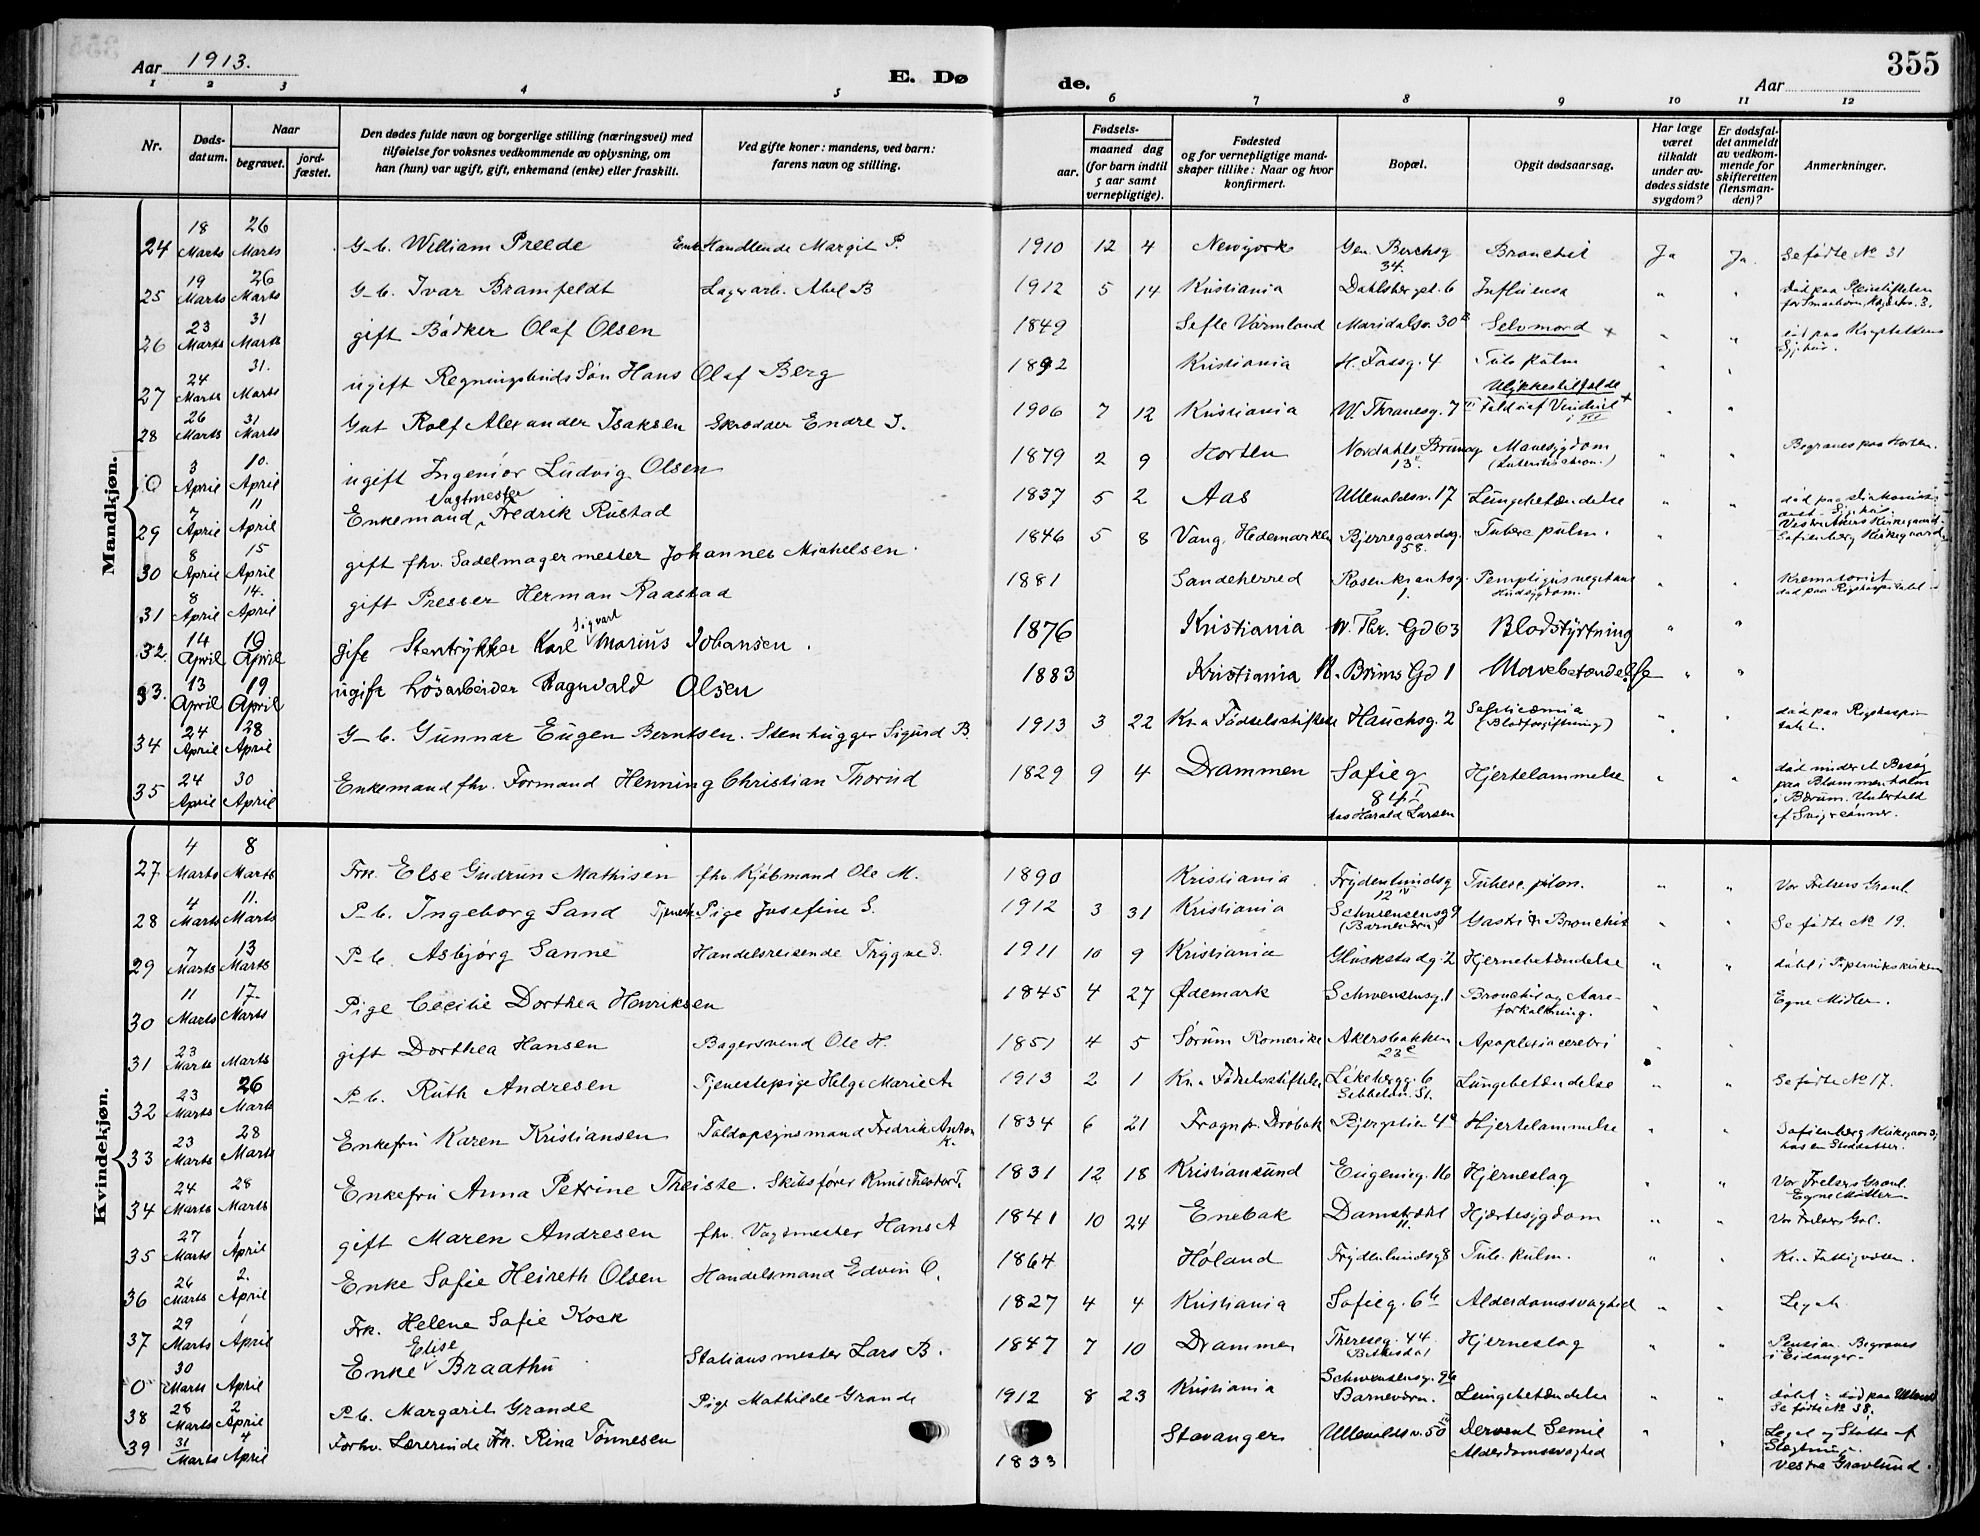 355
Aar 1913.
E. Dø de.
Aar
1 2 3 4 5 6 7 8 9 10 11 12
Nr.
Døds-
datum.
Naar
begravet.
jord-
fæstet.
Den dødes fulde navn og borgerlige stilling (næringsvei) med
tilføielse for voksnes vedkommende av oplysning, om
han (hun) var ugift, gift, enkemand (enke) eller fraskilt.
Ved gifte koner: mandens, ved barn:
farens navn og stilling.
Fødsels-
aar.
maaned dag
(for barn indtil
5 aar samt
vernepligtige).
Fødested
og for vernepligtige mand-
skaper tillike: Naar og hvor
konfirmert.
Bopæl.
Opgit dødsaarsag.
Har læge
været
tilkaldt
under av-
dødes sidste
sygdom?
Er dødsfal-
det anmeldt
av vedkom-
mende for
skifteretten
(lensman-
den)?
Anmerkninger.
Mandkjøn.
24 18 Marts 26 Marts G-b. William Preede Handlende Margit P. 1910 12 4 Newyork Gen. Birchsg 34. Bronchit Ja Ja. Se fødte No 31
25 19 Marts 26 Marts G-b. Ivar Bramfeldt Lagerarb. Abel B 1912 5 14 Kristiania Dahlsbergst. 6 Influensa " "
26 23 Marts 31 Marts gift Bødker Olaf Olsen 1849 Sefle Värmland Maridalsv. 30 B Selvmord + " "
27 24 Marts 31. Marts ugift Søn Hans Olaf Berg 1892 Kristiania H. Fossg. 4 Tub. pulm " "
28 26 Marts 31 Marts Gut Rolf Alexander Isaksen Skrædder Endre I. 1906 7 12 Kristiania W. Thranesg. 7 III Ulykkestilfælde + Fald ud af Vindue i III " "
0 3 April 10. April ugift Ingeniør Ludvig Olsen 1879 2 9 Horten Nordahl Brunsg 13. Mavesygdom " " Begraves paa Horten.
29 7 April 11 April Enkemand Vagtmester Fredrik Rustad 1837 5 2 Aas Ullevaldsv. 17 Lungebetændelse " " Vestre Akers Kirkegaard
30 8 April 15 April gift fhv. Sadelmagermester Johannes Michelsen. 1846 5 8 Vang, Hedemarken Bjerregaardsg. 58. Tuberc pulm. " " Sofienberg Kirkegaard
31 8 April 14. April gift Presser Herman Raastad 1881 Sandeherred Rosenkrantsg. 1. Pemphigus vegetans Hudsygdom. " " Krematoriet død paa Rigshospitalet
32. 14 April 19 April gift Stentrykker Karl Sigvart Marius Johansen. 1876 Kristiania W. Thr. Gd 63 Blodstyrtning " "
33. 13 April 19 April ugift Løsarbeider Ragnvald Olsen 1883 Kristiania N. Bruns Gd 1 Mavebetændelse " "
34 24 April 28 April G-b. Gunnar Eugen Berntsen. Stenhugger Sigurd B. 1913 3 22 Kr.a Fødselsstiftelse Hauchsg. 2 Septicæmia (Blodforgiftning) " " død paa Rigshospitalet.
35 24 April 30 April Enkemand fhv. Formand Henning Christian Thorud 1829 9 4 Drammen Sofieg 84 I hos Harald Larsen Hjertelammelse " " død under et Besøg paa Blommenholm i Bærum. Underhold af Svigersønner.
Kvindekjøn.
27 4 Marts 8 Marts Frk. Else Gudrun Mathisen fhv. Kjøbmand Ole M. 1890 Kristiania Frydenlundsg 12 IV Tuberc. pulm. " " Vor Frelsers Gravl.
28 4 Marts 11. Marts P-b. Ingeborg Sand Tjeneste Pige Josefine S. 1912 3 31 Kristiania Schwensensg 9 (Barnehjem) Gastrit & Bronchit " " Se fødte No 19.
29 7 Marts 13 Marts P-b. Asbjørg Sanne Handelsreisende Trygve S. 1911 10 9 Kristiania Glückstadg. 2 Hjernebetændelse " " døbt i Piperviks kirken
30 11 Marts 17. Marts Pige Cecilie Dorthea Henriksen 1845 4 27 Ødemark Schwensensg. 1 Bronchit og Aareforkalkning. " Egne Midler.
31 23 Marts Marts gift Dorthea Hansen Bagersvend Ole H. 1851 4 5 Sørum Romerike Akersbakken 23 c Apoplexia cerebri " "
32 23 Marts 26 Marts P-b. Ruth Andresen Tjenestepige Helga Marie A. 1913 2 1 Kr.a Fødselsstiftelse Lungebetændelse " " Se fødte No 17.
33 23 Marts 28 Marts Enkefru Karen Kristiansen Toldopsynsmand Fredrik Anton K. 1834 6 21 Frogn pr. Drøbak Bjergstien 4 a Hjertelammelse " " Sofienberg Kirkegaard, hos en Steddatter.
34 24 Marts 28 Marts Enkefru Anna Petrine Theiste. Skibsfører T. 1831 12 18 Kristiansund Eugenieg. 16 Hjerneslag " " Vor Frelsers Gravl. Egne Midler
35 27 Marts 1 April gift Maren Andresen fhv. Vagtmester Hans A 1841 10 24 Enebak Damstræde 11. Hjertesygdom " " Vor Frelsers Gvl.
36 26 Marts 2. April Enke Sofie Heireth Olsen Handelsmand Edvin O. 1864 Høland Frydenlundsg 8 Tub. pulm. " " Kr.a Fattigvæsen.
37 29 Marts 1 April Frk. Helene Sofie Kosk 1827 4 4 Kristiania Sofieg. 6 b Alderdomssvaghed " " Legat.
0 30 Marts April Enke Elise Braathu Stationsmester Lars B. 1847 7 10 Drammen Theresesg. 44. Hjerneslag " " Pension. Begraves i Eidanger.
38 28 Marts 2 April P-b. Margarit Grande Pige Mathilde Grande 1912 8 23 Kristiania Schwensensg. 9b Barnehjem. Lungebetændelse " " Se fødte No 38.
39 31 Marts 4 April Forhv. Lærerinde Frk. Rina Tønnesen 1833 Stavanger Ullevaldsv. 50 Alderdomssvaghed " " Vestre Gravlund.